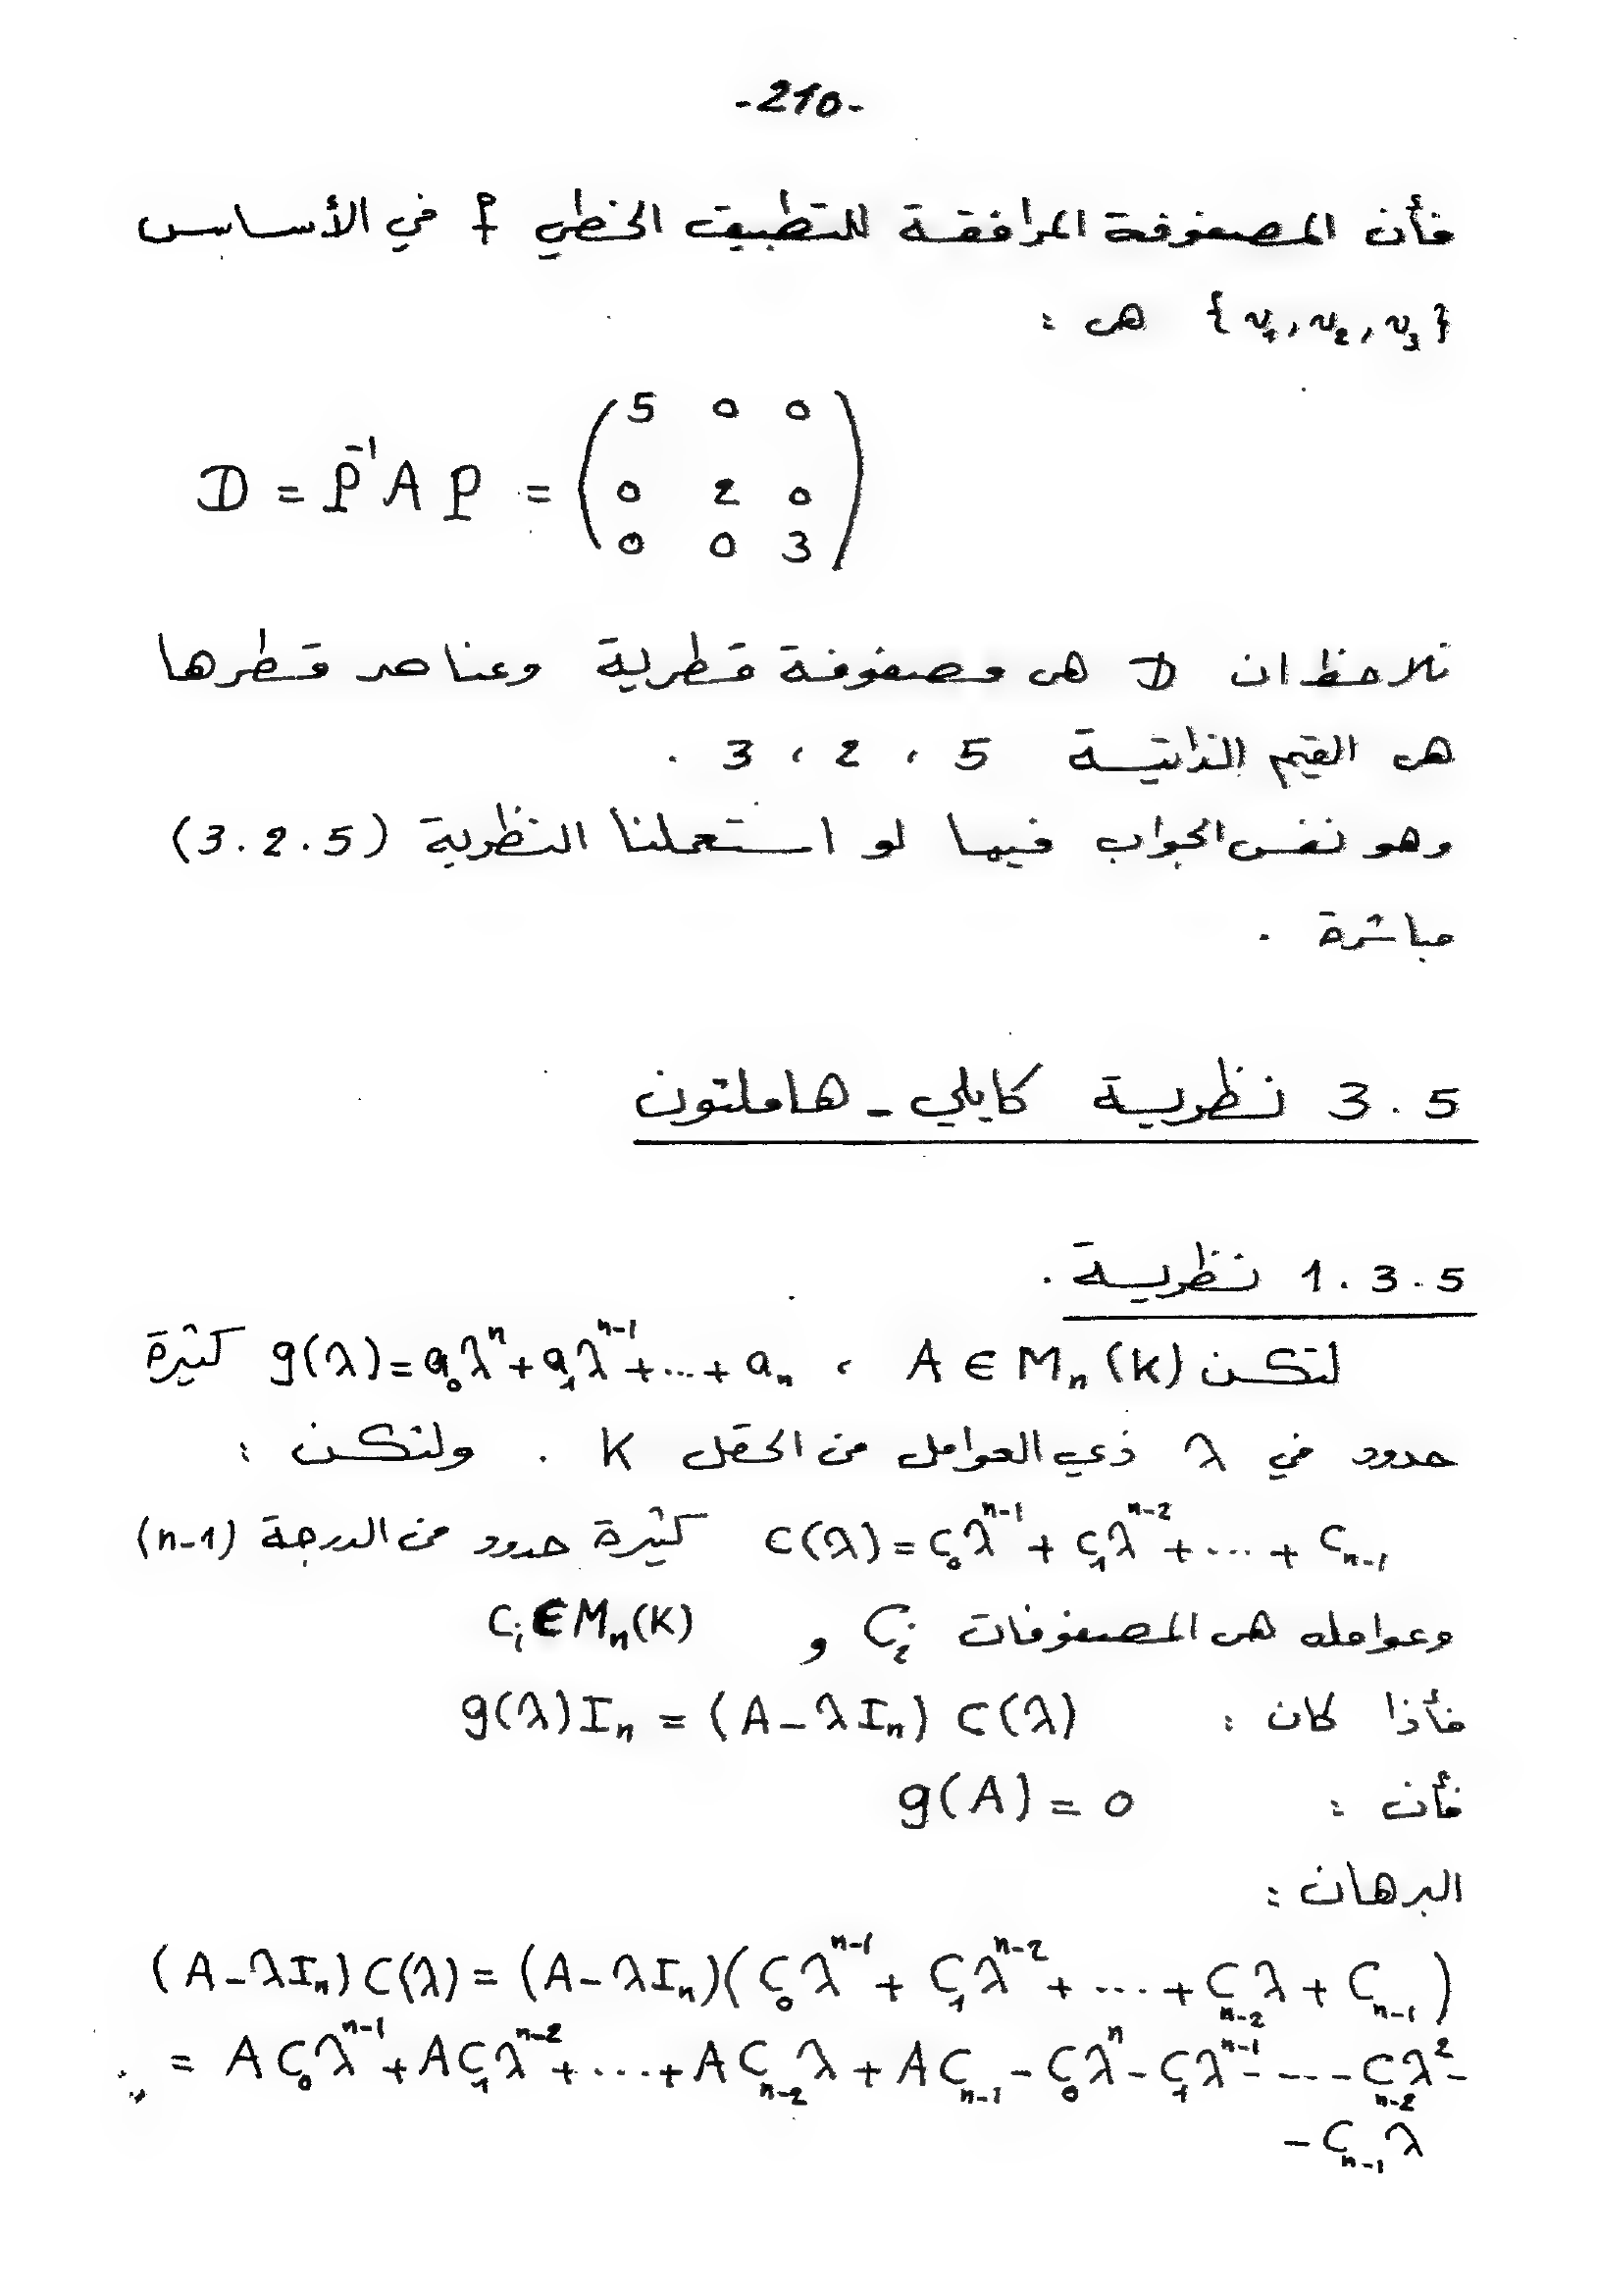 -210-
فأن المصفوفة المرافقة للتطبيق الخطي f في الأساس
{v₁, v₂, v₃} هي :
D = P⁻¹ A P = ( 5 0 0
0 2 0
0 0 3 )
نلاحظ ان D هي مصفوفة قطرية وعناصر قطرها
هي القيم الذاتية 5 ، 2 ، 3 .
وهو نفس الجواب فيما لو استعملنا النظرية (3.2.5)
مباشرة .
3.5 نظرية كايلي - هاملتون
1.3.5 نظرية .
لتكن A ∈ Mₙ(K) ، g(λ) = a₀λⁿ + a₁λⁿ⁻¹ + ... + aₙ كثيرة
حدود في λ ذي العوامل من الحقل K . ولتكن :
C(λ) = C₀λⁿ⁻¹ + C₁λⁿ⁻² + ... + Cₙ₋₁ كثيرة حدود من الدرجة (n-1)
وعوامله هي المصفوفات Cᵢ و Cᵢ ∈ Mₙ(K)
فأذا كان : g(λ)Iₙ = (A - λIₙ) C(λ)
فأن : g(A) = 0
البرهان :
(A - λIₙ) C(λ) = (A - λIₙ)(C₀λⁿ⁻¹ + C₁λⁿ⁻² + ... + Cₙ₋₂λ + Cₙ₋₁)
= AC₀λⁿ⁻¹ + AC₁λⁿ⁻² + ... + ACₙ₋₂λ + ACₙ₋₁ - C₀λⁿ - C₁λⁿ⁻¹ - ... - Cₙ₋₂λ² -
- Cₙ₋₁λ